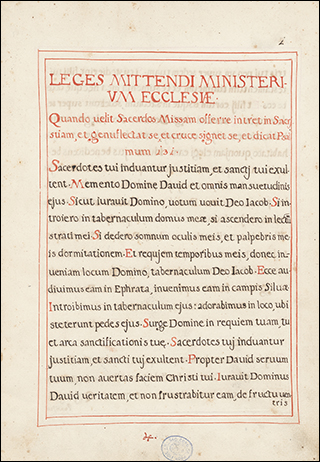 2
LEGES MITTENDI MINISTERI-
VM ECCLESIÆ.
Quando uelit Sacerdos Missam offerre intret in Sacri-
stiam, et genuflectat se, et cruce signet se, et dicat Psal-
mum 131.
Sacerdotes tui induantur justitiam, et sanctj tui exul-
tent. Memento Domine Dauid et omnis mansuetudinis
ejus. Sicut iurauit Domino, uotum uouit Deo Iacob. Si in-
troiero in tabernaculum domus meæ, si ascendero in lectū
strati mei. Si dedero somnum oculis meis, et palpebris me-
is dormitationem. Et requjem temporibus meis, donec in-
ueniam locum Domino, tabernaculum Deo Iacob. Ecce au-
diuimus eam in Ephrata, inuenimus eam in campis Siluæ.
Introibimus in tabernaculum ejus: adorabimus in loco, ubi
steterunt pedes ejus. Surge Domine in requiem tuam, tu
et arca sanctificationis tuę. Sacerdotes tuj induantur
justitiam, et sancti tuj exultent. Propter Dauid seruum
tuum, non auertas faciem Christi tui. Iurauit Dominus
Dauid ueritatem, et non frustrabitur eam, de fructu uen
tris